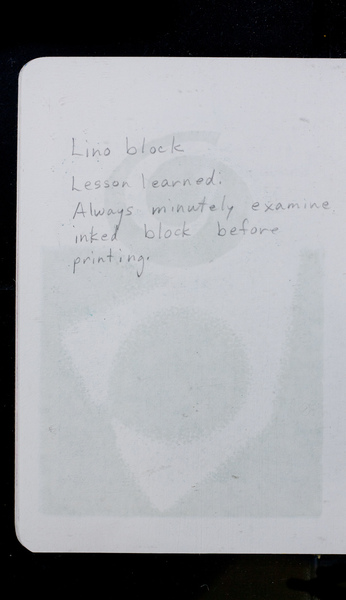 Lino block
Lesson learned:
Always minutely examine
inked block before
printing.